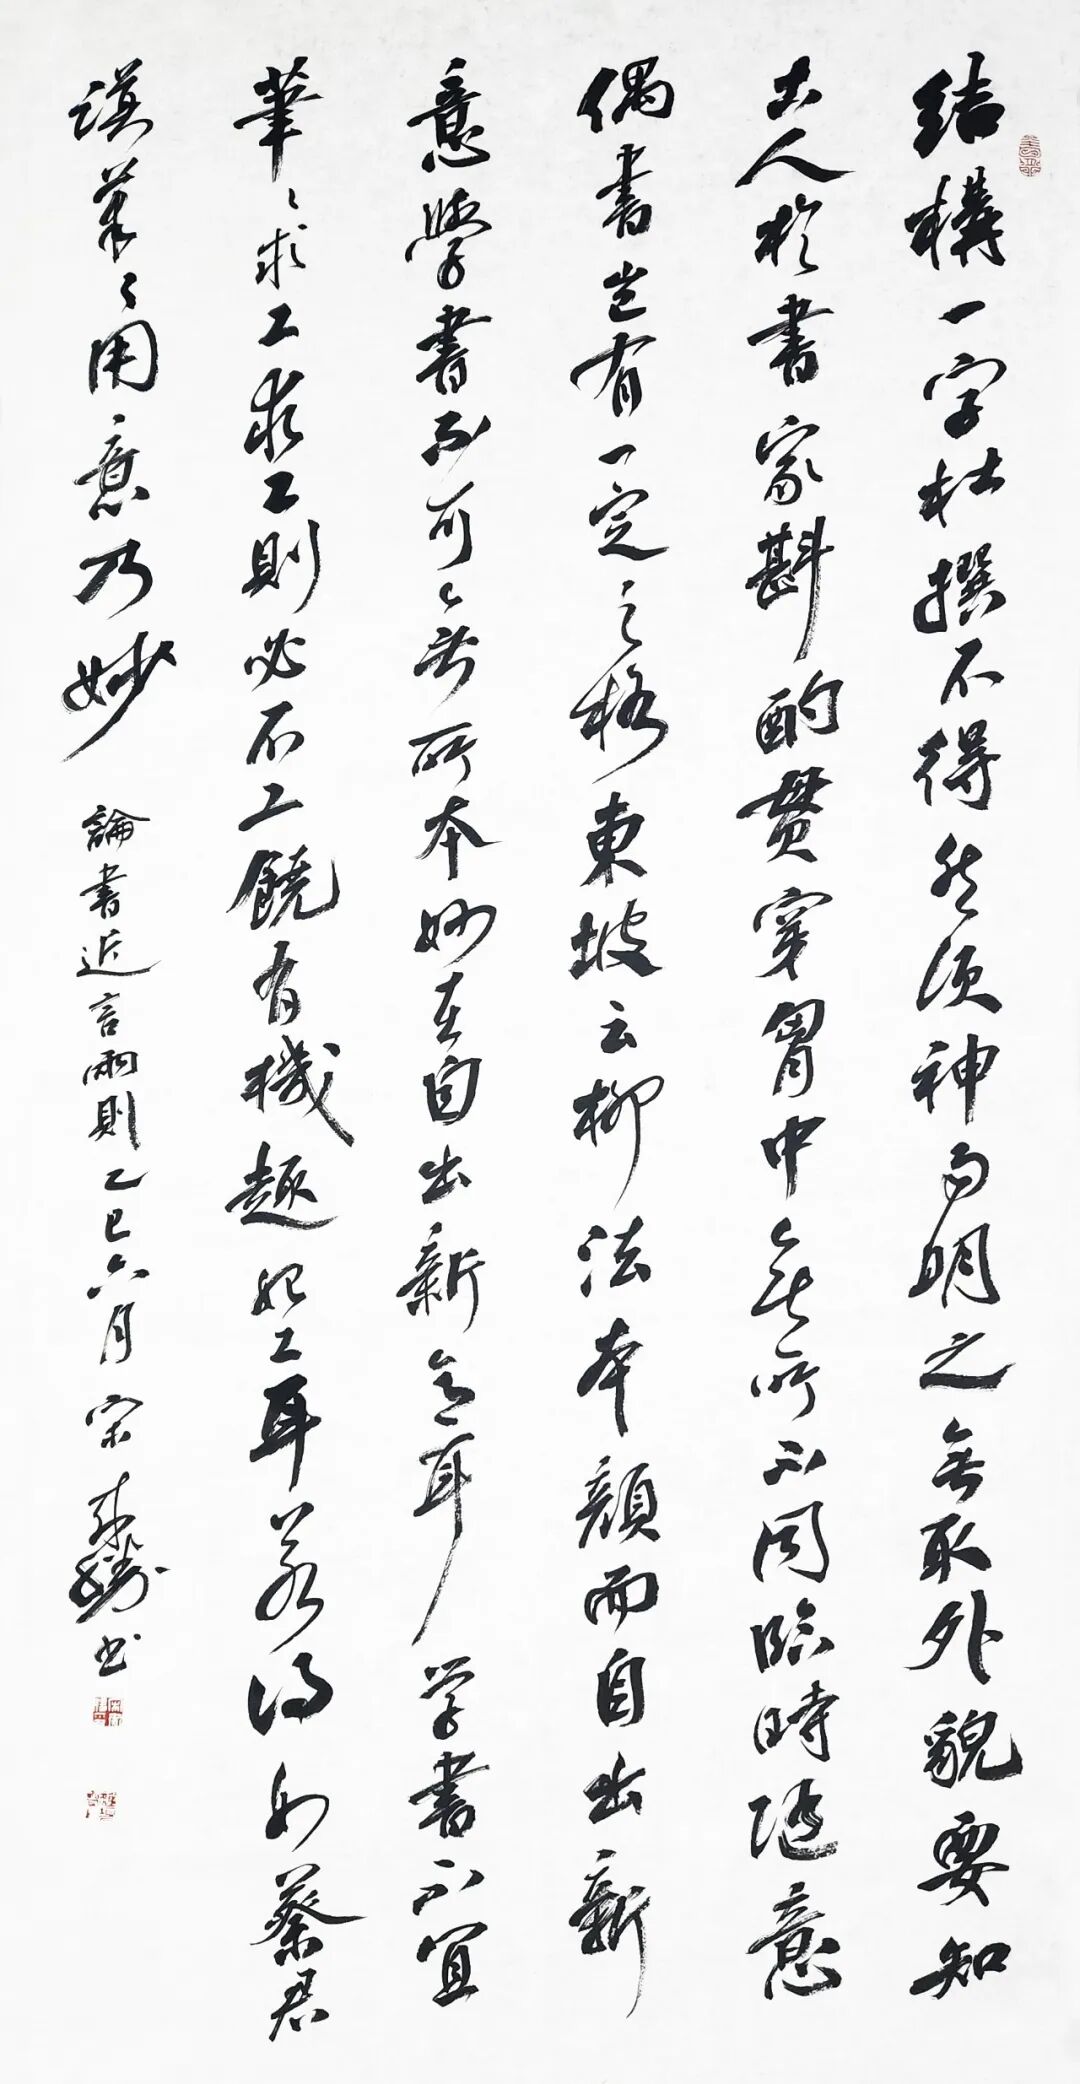 結構一字杜撰不得然須神而明之無取外貌要知
古人於書家斟酌貫穿胷中無所不同臨時隨意
偶書豈有一定之格東坡云柳法本顏而自出新
意學書不可無所本妙在自出新意耳學書不宜
筆〻求工求工則必不工饒有機趣始工耳若得如蔡君
謨筆〻用意乃妙 論書近言兩則乙巳六月宋書